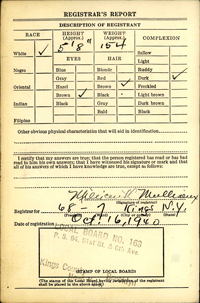 REGISTRAR'S REPORT
DESCRIPTION OF REGISTRANT
RACE HEIGHT (Approx.) WEIGHT (Approx.) COMPLEXION
5' 8" 154
White ✓ EYES HAIR Sallow
Light
Negro Blue Blonde Ruddy
Gray Red Dark ✓
Oriental Hazel Brown ✓ Freckled
Brown ✓ Black Light brown
Indian Black Gray Dark brown
Bald Black
Filipino
Other obvious physical characteristics that will aid in identification
I certify that my answers are true; that the person registered has read or has had
read to him his own answers; that I have witnessed his signature or mark and that
all of his answers of which I have knowledge are true, except as follows:
(Signature of registrar)
Registrar for 68 7 Kings N.Y.
Date of registration Oct. 16, 1940
LOCAL BOARD No. 163
Kings
STAMP OF LOCAL BOARD
(The stamp of the Local Board having jurisdiction of the registrant
shall be placed in the above space)